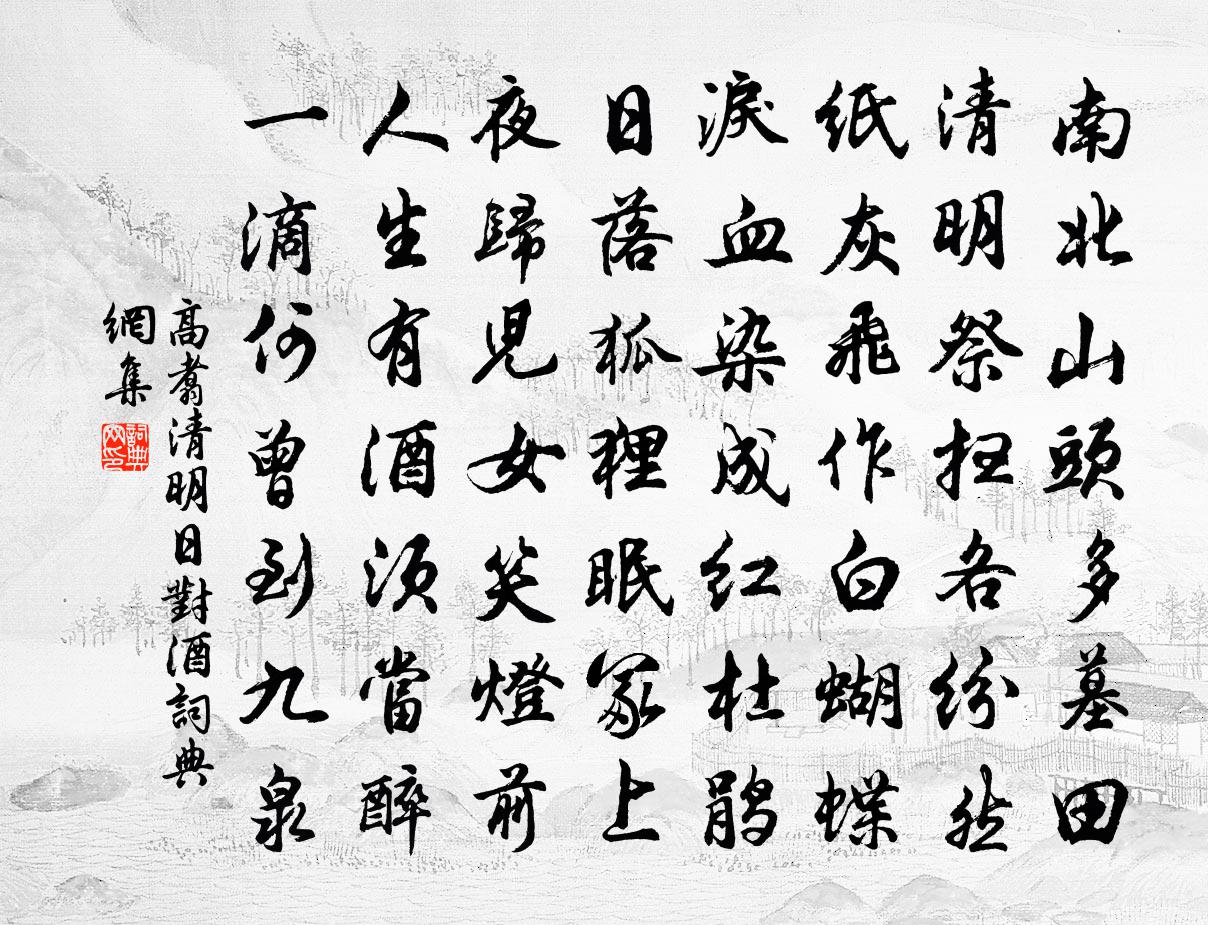 南北山頭多墓田
清明祭扫各紛然
紙灰飛作白蝴蝶
淚血染成红杜鹃
日落狐狸眠冢上
夜歸児女笑燈前
人生有酒須當醉
一滴何曾到九泉
高翥清明日對酒詞典
網集
詞典
网印